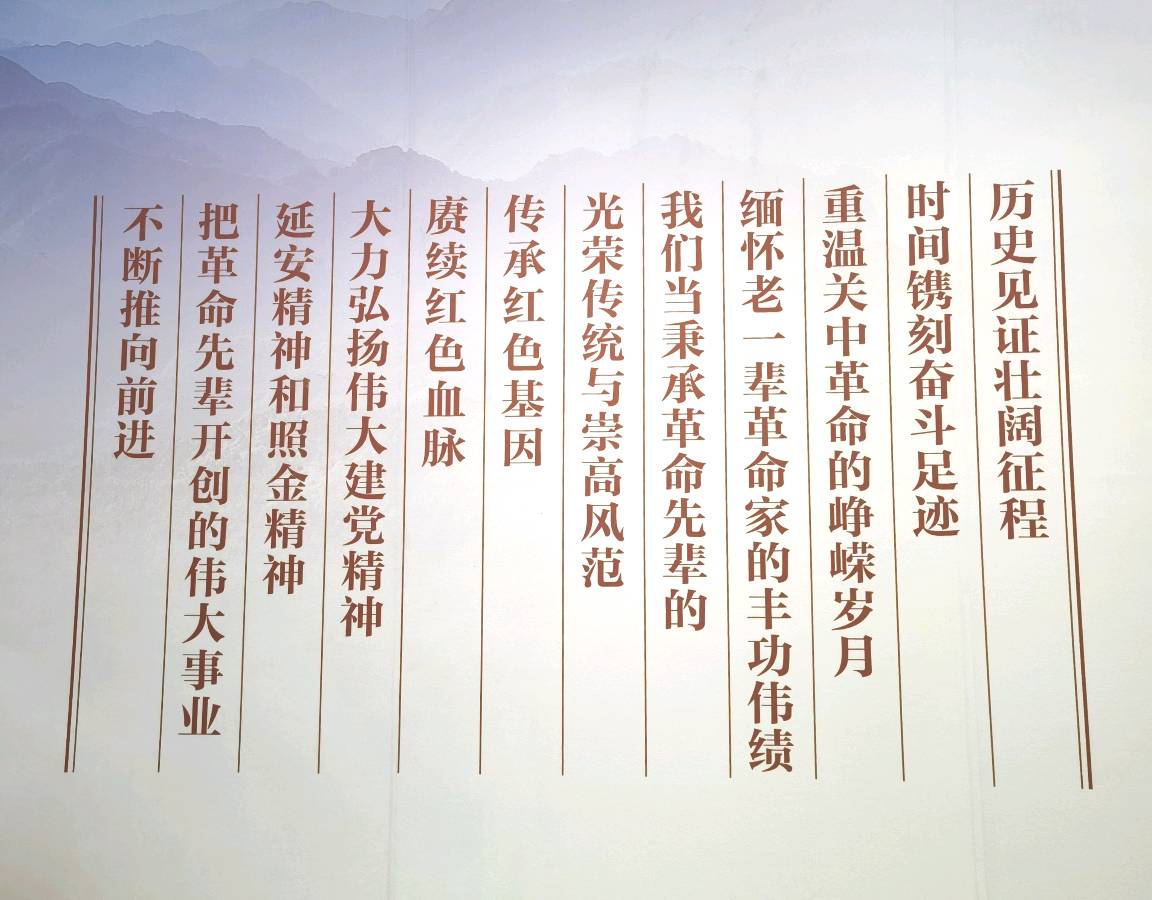 历史见证壮阔征程
时间镌刻奋斗足迹
重温关中革命的峥嵘岁月
缅怀老一辈革命家的丰功伟绩
我们当秉承革命先辈的
光荣传统与崇高风范
传承红色基因
赓续红色血脉
大力弘扬伟大建党精神
延安精神和照金精神
把革命先辈开创的伟大事业
不断推向前进